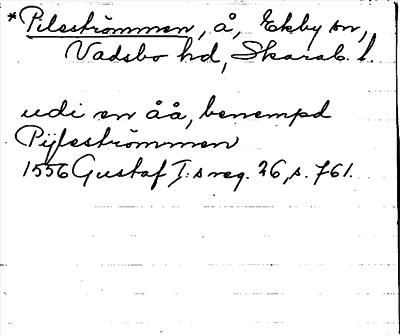 *Pilsströmmen, å, Ekby sn,
Vadsbo hd, Skarab. l.
udi en åå, benempd
Pijlsströmmen
1556 Gustaf I:s reg. 26, s. 761.